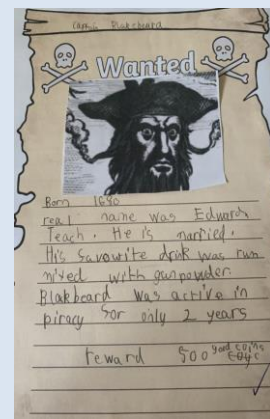 Captain Blakebeard
Wanted
Born 1680
real name was Edward
Teach. He is married.
His favourite drink was rum
mixed with gunpowder
Blakbeard was active in
piracy for only 2 years
reward 500 gold coins